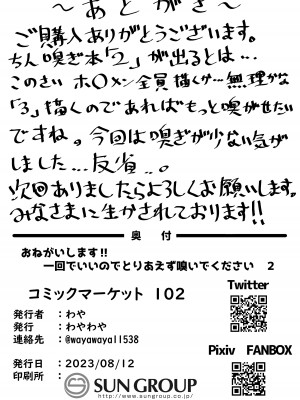 ～あとがき～
ご購入ありがとうございます。
ちん嗅ぎ本「2」が出るとは…
このさい ホ〇メン全員描くか…無理かな
「3」描くのであればもっと嗅がせたい
ですね。今回は嗅ぎが少ない気が
しました…反省…。
次回ありましたらよろしくお願いします。
みなさまに生かされております!!
奥 付
おねがいします!!
一回でいいのでとりあえず嗅いでください 2
コミックマーケット 102
発行者：わや
発行：わやわや
連絡先：@wayawaya11538
発行日：2023/08/12
印刷所：
SUN GROUP
http://www.sungroup.co.jp/
Twitter
Pixiv FANBOX